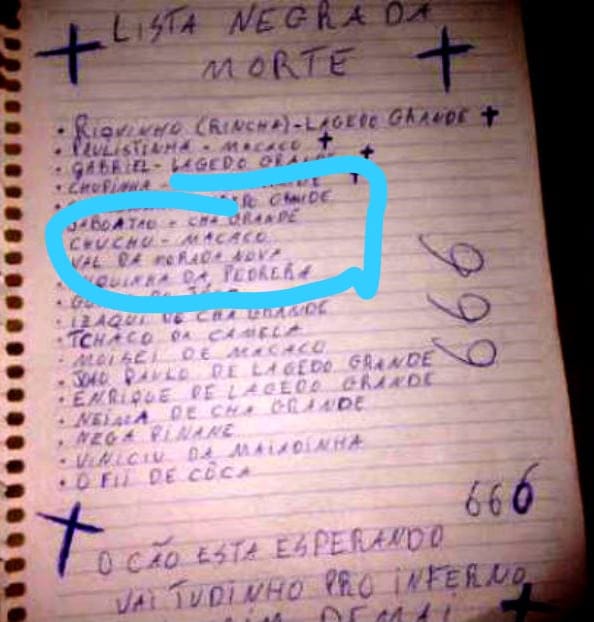 LISTA NEGRA DA
MORTE
• RIQUINHO (RINCHA) - LAGEDO GRANDE +
• PAULISTINHA - MACACO +
• GABRIEL - LAGEDO GRANDE +
GRANDE
JABOATAO - CHA GRANDE
CHUCHU - MACACO
VAL DA MORADA NOVA
DA PEDRERA
• IZAQUI DE CHA GRANDE
• TCHACO DA CAMELA
• MOISEI DE MACACO
• JOAO PAULO DE LAGEDO GRANDE
• ENRIQUE DE LAGEDO GRANDE
• NEIMA DE CHA GRANDE
• NEGA PINANE
• VINICIU DA MAIADINHA
• O FII DE CÔCA
666
666
O CÃO ESTA ESPERANDO
VAI TUDINHO PRO INFERNO